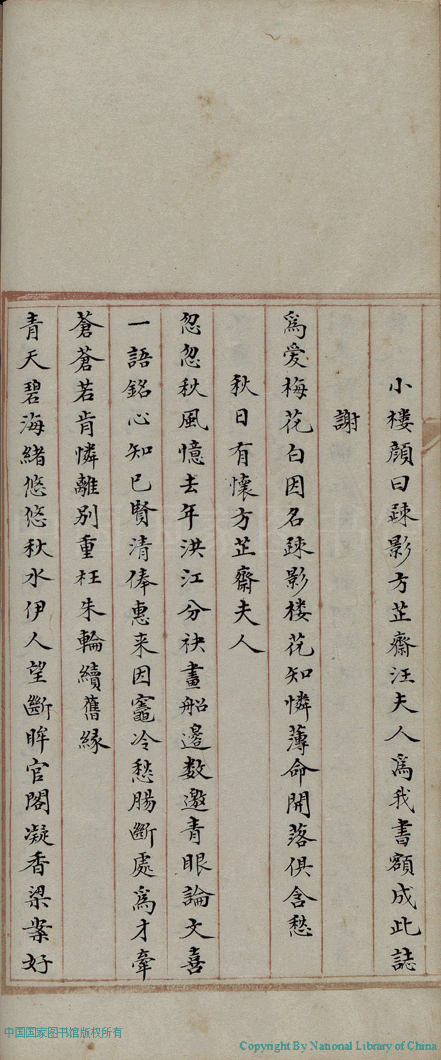 小楼顔曰疎影方芷齋汪夫人爲我書額成此誌
謝
爲愛梅花白因名疎影楼花知憐薄命開落俱含愁
秋日有懷方芷齋夫人
忽忽秋風憶去年洪江分袂畫船邉数邀青眼論文喜
一語銘心知已賢清俸惠来因竈冷愁腸斷處爲才牽
蒼蒼若肯憐離別重枉朱輪續舊緣
青天碧海緒悠悠秋水伊人望斷眸官閣凝香梁案好
中国国家图书馆版权所有
Copyright By National Library of China